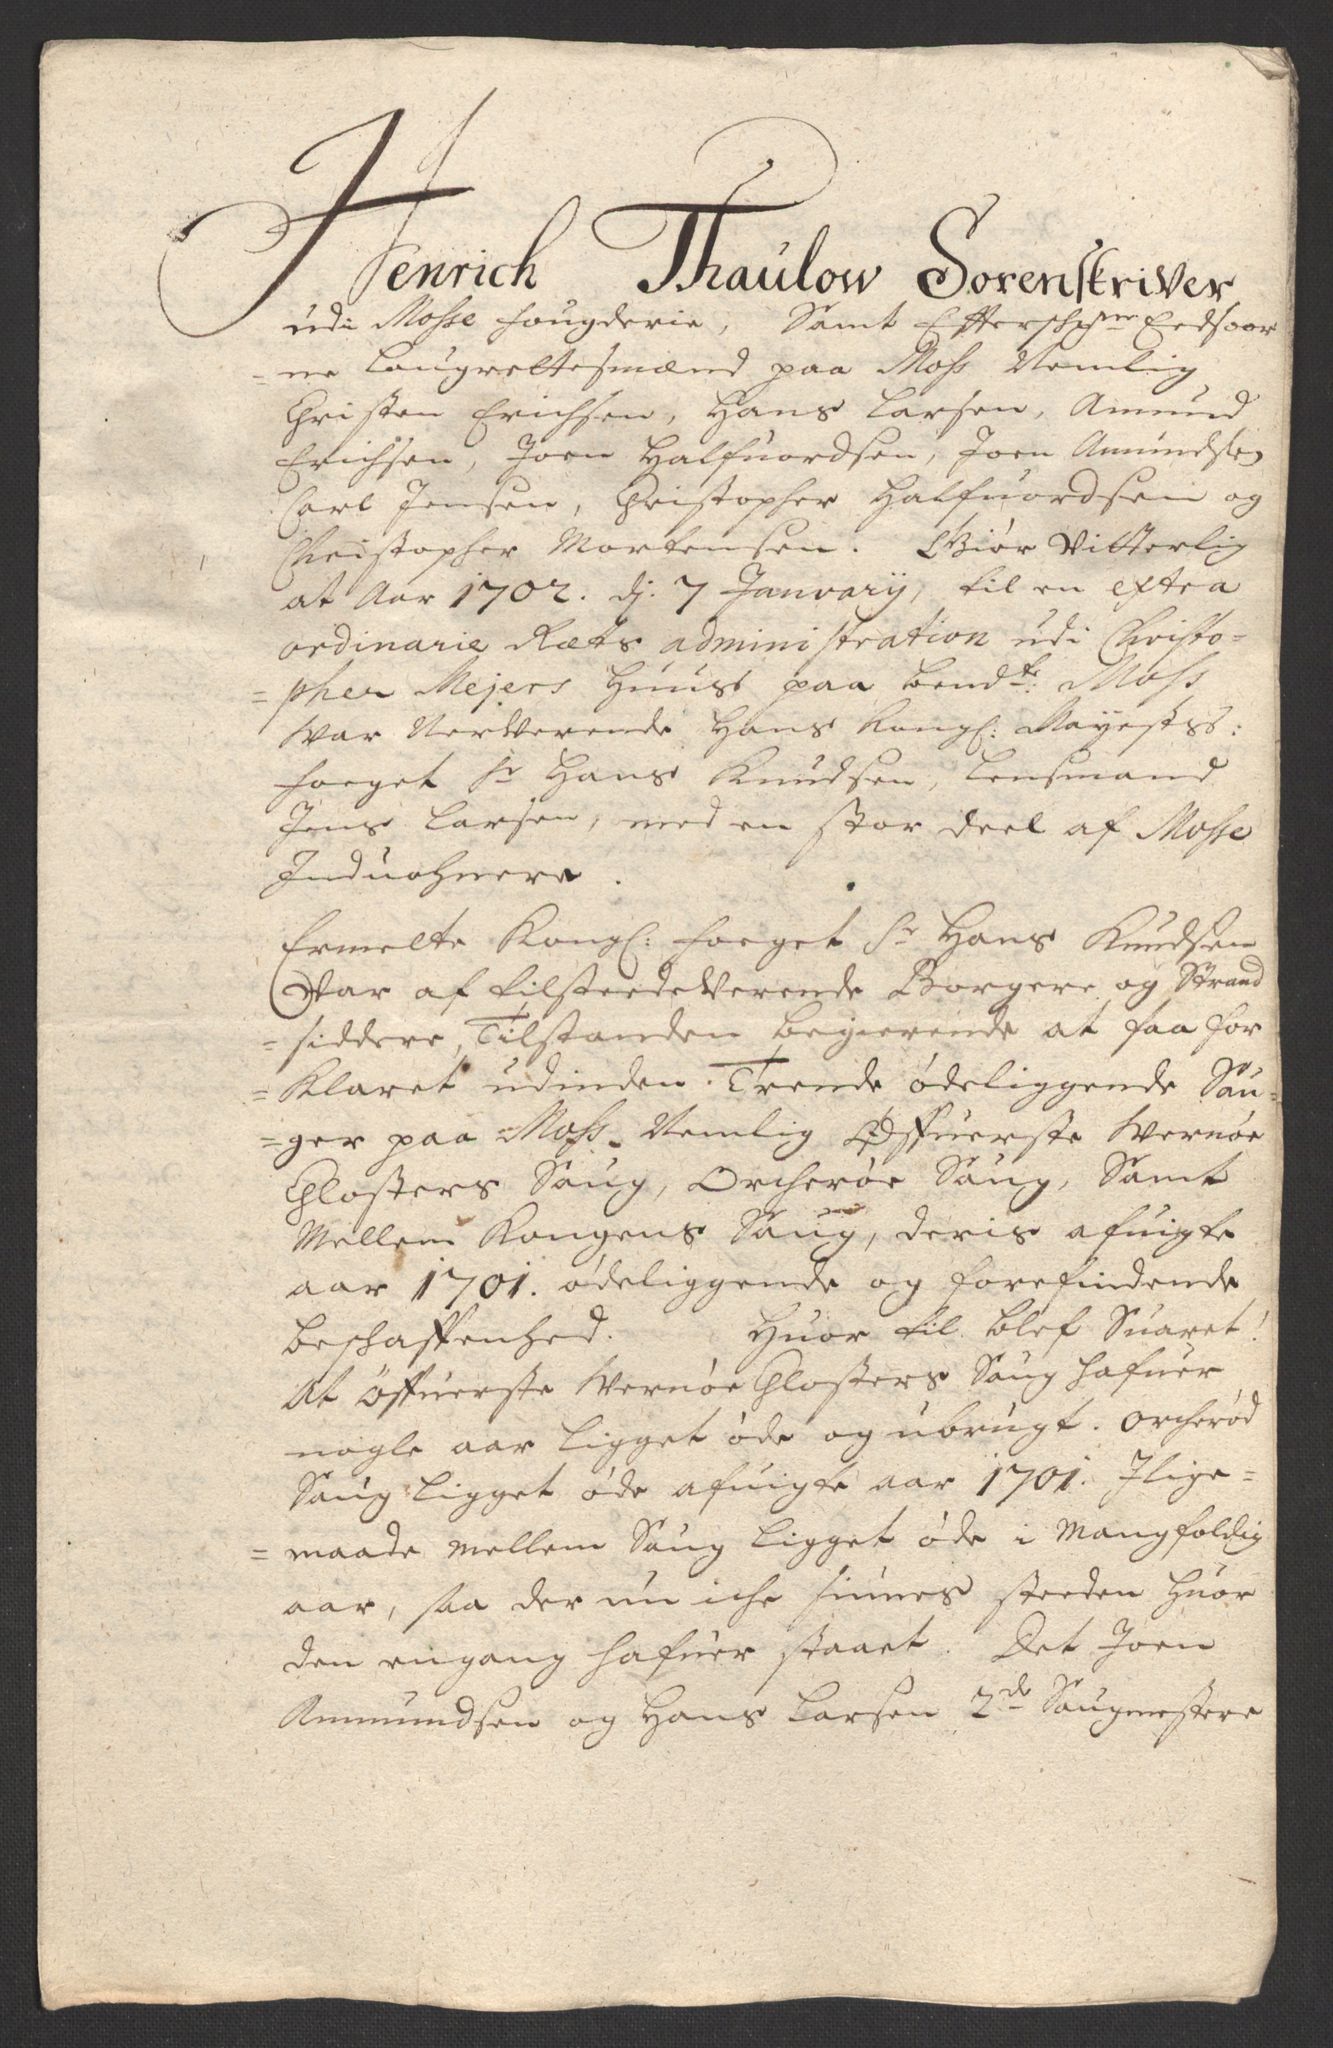 Henrich Thaulow Sorenskriver
udi Mosse fougderie, Samt Effterschrne Eedsoor
= ne Laugrettesmænd paa Moss Nemlig
Christen Erichsen, Hans Larsen, Amund
Erichsen, Joen Halfuordsen, Joen Amundsen
Carl Jensen, Christopher Halfuordsen og
Christopher Mortensen. Giör Vitterlig
at Aar 1702. dj. 7 Januarij, til en extra
ordinarie Rets administration udi Christo=
= pher Mejers Huus paa bemdte: Moss
War Nerverende Hans Kongl: Mayestss:
foeget Sr Hans Knudsen, Lensmand
Jens Larsen, med en stor deel af Mosse
Induohnere.
Ermelte Kongl: foeget Sr Hans Knudsen
Var af tilsteedeVerende Borgere og Strand
= siddere, Tilstanden begierende at faa for
= Klaret udinden Trende ödeliggende Sau=
= ger paa Moss. Nemlig Öffuerste Wernöe
Closters Saug, Orcheröe Saug, Samt
Mellem Kongens Saug, deris afuigte
aar 1701. ödeliggende og forefindende
beschaffenhed. Huor til blef Suaret!
At öffuerste Wernöe Closters Saug hafuer
nogle aar ligget öde og ubrugt. Orcheröd
Saug ligget öde afuigte aar 1701. Ilige=
= maade mellem Saug ligget öde i Mangfoldig
aar, saa der nu iche finnes steeden huor
den engang hafuer staaet. Det Joen
Ammundsen og Hans Larsen 2de Saugmestere